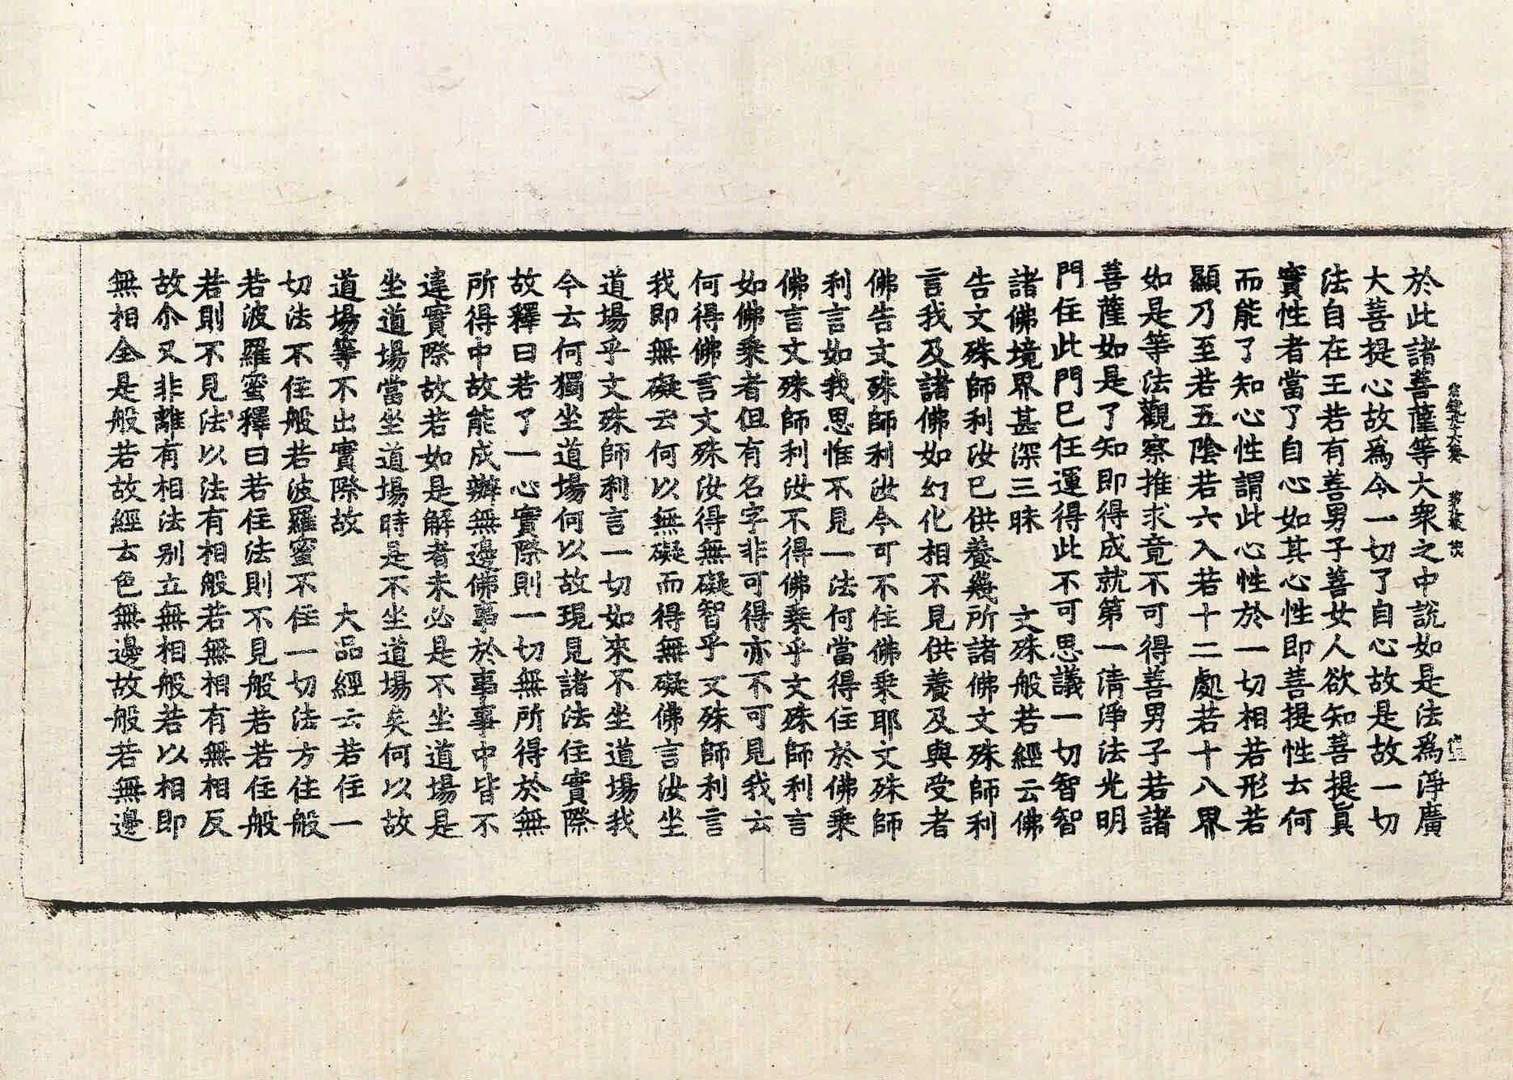 於此諸菩薩等大衆之中說如是法爲淨廣
大菩提心故爲令一切了自心故是故一切
法自在王若有善男子善女人欲知菩提眞
實性者當了自心如其心性即菩提性云何
而能了知心性謂此心性於一切相若形若
顯乃至若五陰若六入若十二處若十八界
如是等法觀察推求竟不可得善男子若諸
菩薩如是了知即得成就第一清淨法光明
門住此門已任運得此不可思議一切智智
諸佛境界甚深三昧　文殊般若經云佛
告文殊師利汝已供養幾所諸佛文殊師利
言我及諸佛如幻化相不見供養及與受者
佛告文殊師利汝今可不住佛乘耶文殊師
利言如我思惟不見一法何當得住於佛乘
佛言文殊師利汝不得佛乘乎文殊師利言
如佛乘者但有名字非可得亦不可見我云
何得佛言文殊汝得無礙智乎文殊師利言
我即無礙云何以無礙而得無礙佛言汝坐
道場乎文殊師利言一切如來不坐道場我
今云何獨坐道場何以故現見諸法住實際
故釋曰若了一心實際則一切無所得於無
所得中故能成辦無邊佛事於事事中皆不
違實際故若如是解者未必是不坐道場是
坐道場當坐道場時是不坐道場矣何以故
道場等不出實際故　大品經云若住一
切法不住般若波羅蜜不住一切法方住般
若波羅蜜釋曰若住法則不見般若若住般
若則不見法以法有相般若無相有無相反
故尒又非離有相法别立無相般若以相即
無相全是般若故經云色無邊故般若無邊